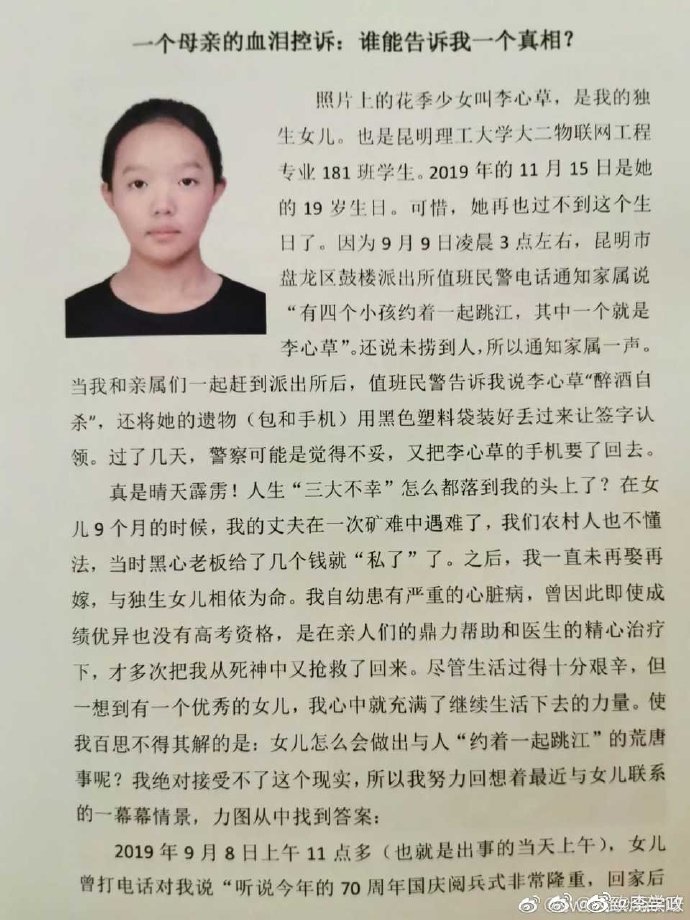 一个母亲的血泪控诉：谁能告诉我一个真相？
照片上的花季少女叫李心草，是我的独
生女儿。也是昆明理工大学大二物联网工程
专业 181 班学生。2019 年的 11 月 15 日是她
的 19 岁生日。可惜，她再也过不到这个生
日了。因为 9 月 9 日凌晨 3 点左右，昆明市
盘龙区鼓楼派出所值班民警电话通知家属说
“有四个小孩约着一起跳江，其中一个就是
李心草”。还说未捞到人，所以通知家属一声。
当我和亲属们一起赶到派出所后，值班民警告诉我说李心草“醉酒自
杀”，还将她的遗物（包和手机）用黑色塑料袋装好丢过来让签字认
领。过了几天，警察可能是觉得不妥，又把李心草的手机要了回去。
真是晴天霹雳！人生“三大不幸”怎么都落到我的头上了？在女
儿 9 个月的时候，我的丈夫在一次矿难中遇难了，我们农村人也不懂
法，当时黑心老板给了几个钱就“私了”了。之后，我一直未再娶再
嫁，与独生女儿相依为命。我自幼患有严重的心脏病，曾因此即使成
绩优异也没有高考资格，是在亲人们的鼎力帮助和医生的精心治疗
下，才多次把我从死神中又抢救了回来。尽管生活过得十分艰辛，但
一想到有一个优秀的女儿，我心中就充满了继续生活下去的力量。使
我百思不得其解的是：女儿怎么会做出与人“约着一起跳江”的荒唐
事呢？我绝对接受不了这个现实，所以我努力回想着最近与女儿联系
的一幕幕情景，力图从中找到答案：
2019 年 9 月 8 日上午 11 点多（也就是出事的当天上午），女儿
曾打电话对我说“听说今年的 70 周年国庆阅兵式非常隆重，回家后
@李学政